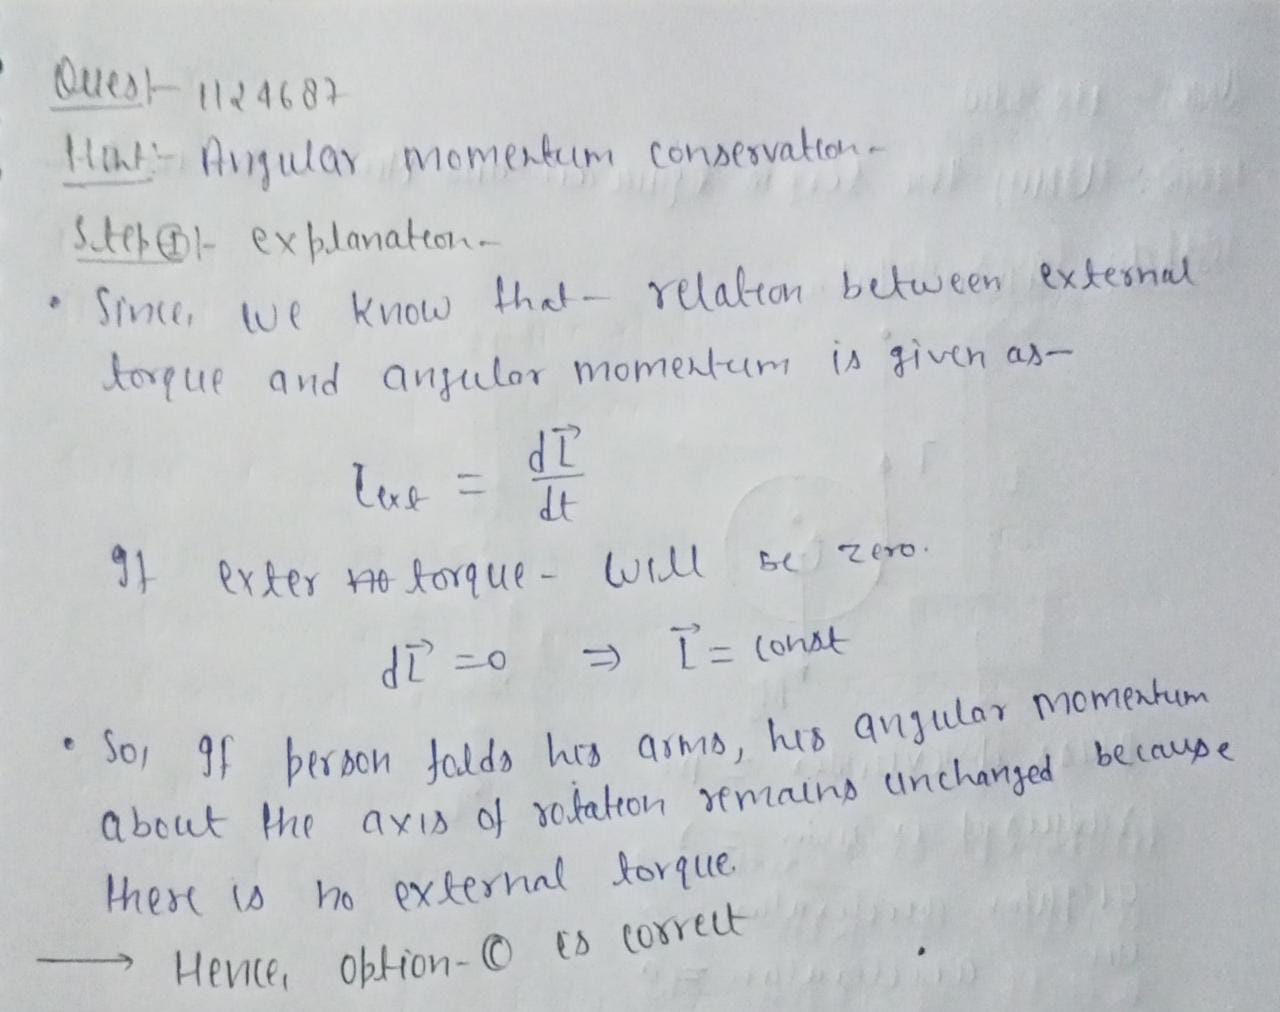 Quest- 1124687
Hint:- Angular momentum conservation-
Step ①:- explanation-
• Since, we know that- relation between external
torque and angular momentum is given as-
τext = dL⃗/dt
If exter torque- will be zero.
dL⃗ = 0 ⇒ L⃗ = const
• So, If person folds his arms, his angular momentum
about the axis of rotation remains unchanged because
there is no external torque.
→ Hence, option- ⓒ is correct